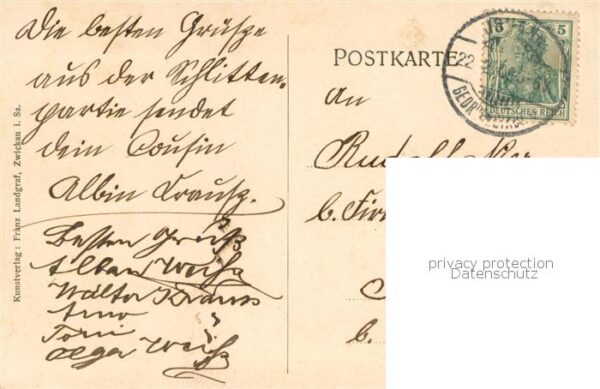 Die besten Grüsze
aus der Schlitten-
partie sendet
dein Cousin
Albin Krausz.
Besten Gruß
Alban Weiß
Walter Krauss
Arno
Toni
Olga Weiß
Kunstverlag: Franz Landgraf, Zwickau i. Sa.
POSTKARTE
5 5
DEUTSCHES REICH
22
GEORGENTHAL
An
b.
b.
privacy protection
Datenschutz